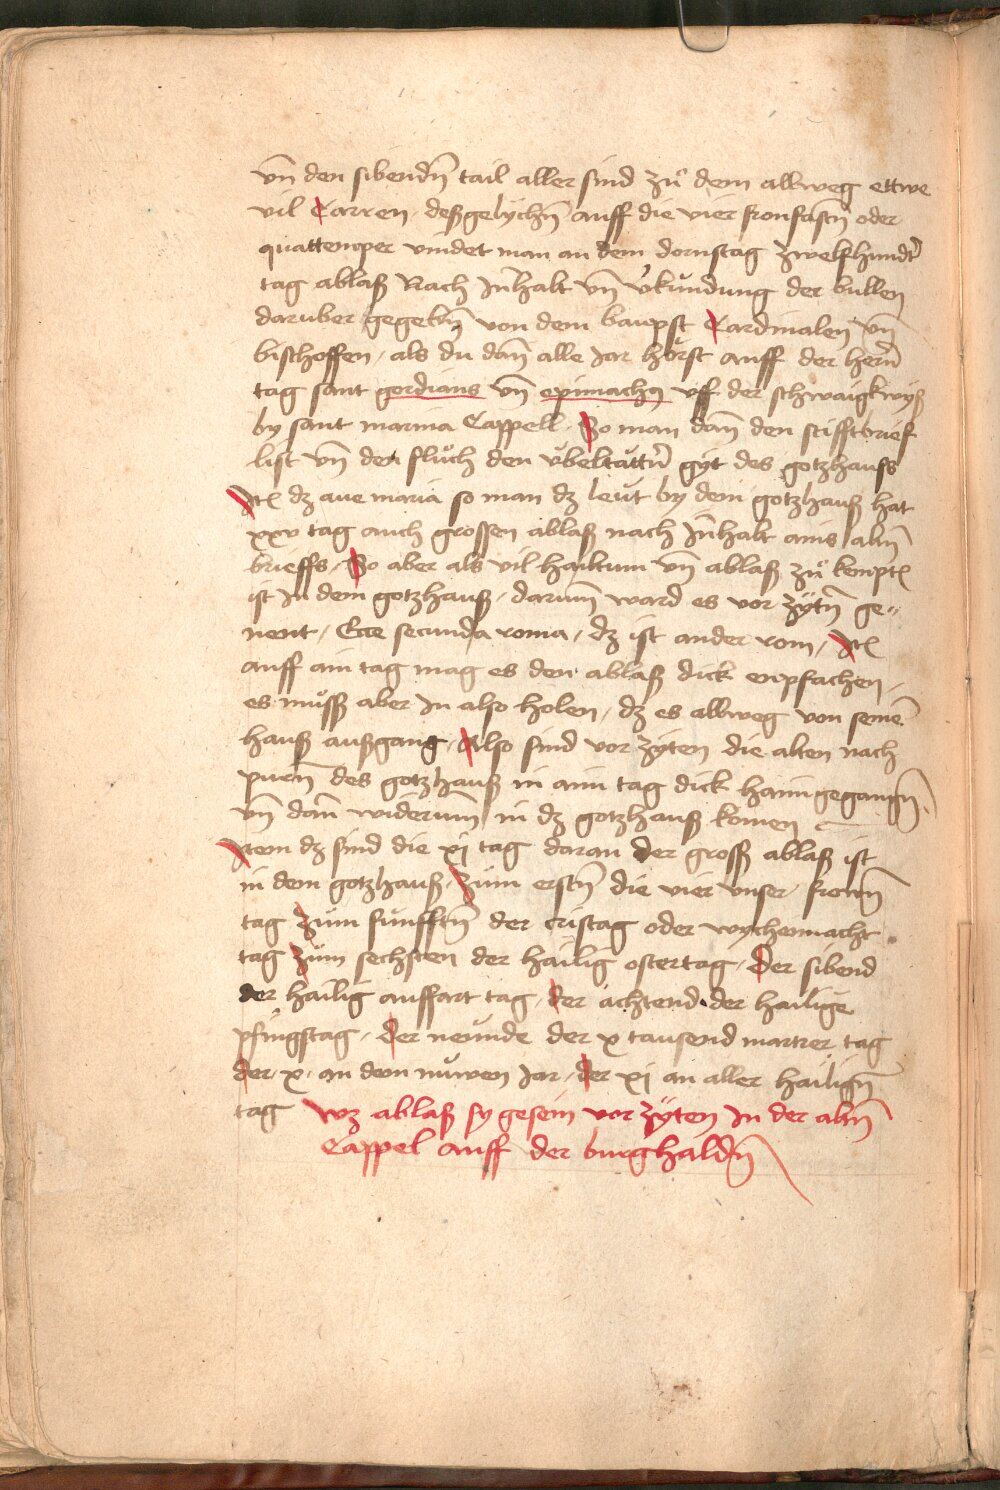 vn̄ den sibendn̄ tail aller sind zů dem allweg ettwe
vil Carren · deßgelychn̄ auff die vier fronfastn̄ oder
quattemper vindet man an dem dornstag zwelfhundt̄
tag ablaß Nach Jnhalt vn̄ v̓kündung der bullen
daruber gegebn̄ von dem baupst Cardinalen vn̄
bischoffen / als du dan̄ alle Jar hörst auff der hern̄
tag sant gordians vn̄ epimachy vff der schwaigkwyß
by sant marina Cappell · So man dan̄ den stifftbrief
list vn̄ den flůch den übeltättn̄ gyt des gotzhauss
Jt̄ dz aue maria so man dz leut by dem gotzhauß hat
xxv tag auch grossen ablaß nach Jnhalt ains altn̄
brieffs / So aber als vil hailtum vn̄ ablaß zů kempt̄
ist Jn dem gotzhauß / darum̄ ward es vor zÿtn̄ ge〃
nent / Ecce secunda roma / dz ist ander rom / Jt̄
auff ain tag mag es den ablaß dick enpfachen /
es můsß aber Jn also holen / dz es allweg von seine̅
hauß außgang / Also sind vor zÿten die alten nach
purn̄ des gotzhauß in aim tag dick haimgegangn̄ ·
vn̄ dan̄ widerum̄ in dz gotzhauß komen
Jtem dz sind die xj tag daran der grosß ablaß ist
in dem gotzhauß · Zum erstn̄ die vier vnser frown̄
tag zum fünfftn̄ der cristag oder wychennacht
tag zům sechsten der hailig ostertag · Der sibend
der hailig auffart tag · der achtend · der hailige
pfingstag · der neunde der x tausend martrer tag
der · x · an dem nüwen Jar · der xj an aller hailign̄
tag wz ablaß sy gesein vor zÿten Jn der altn̄
Cappel auff der burghaldn̄